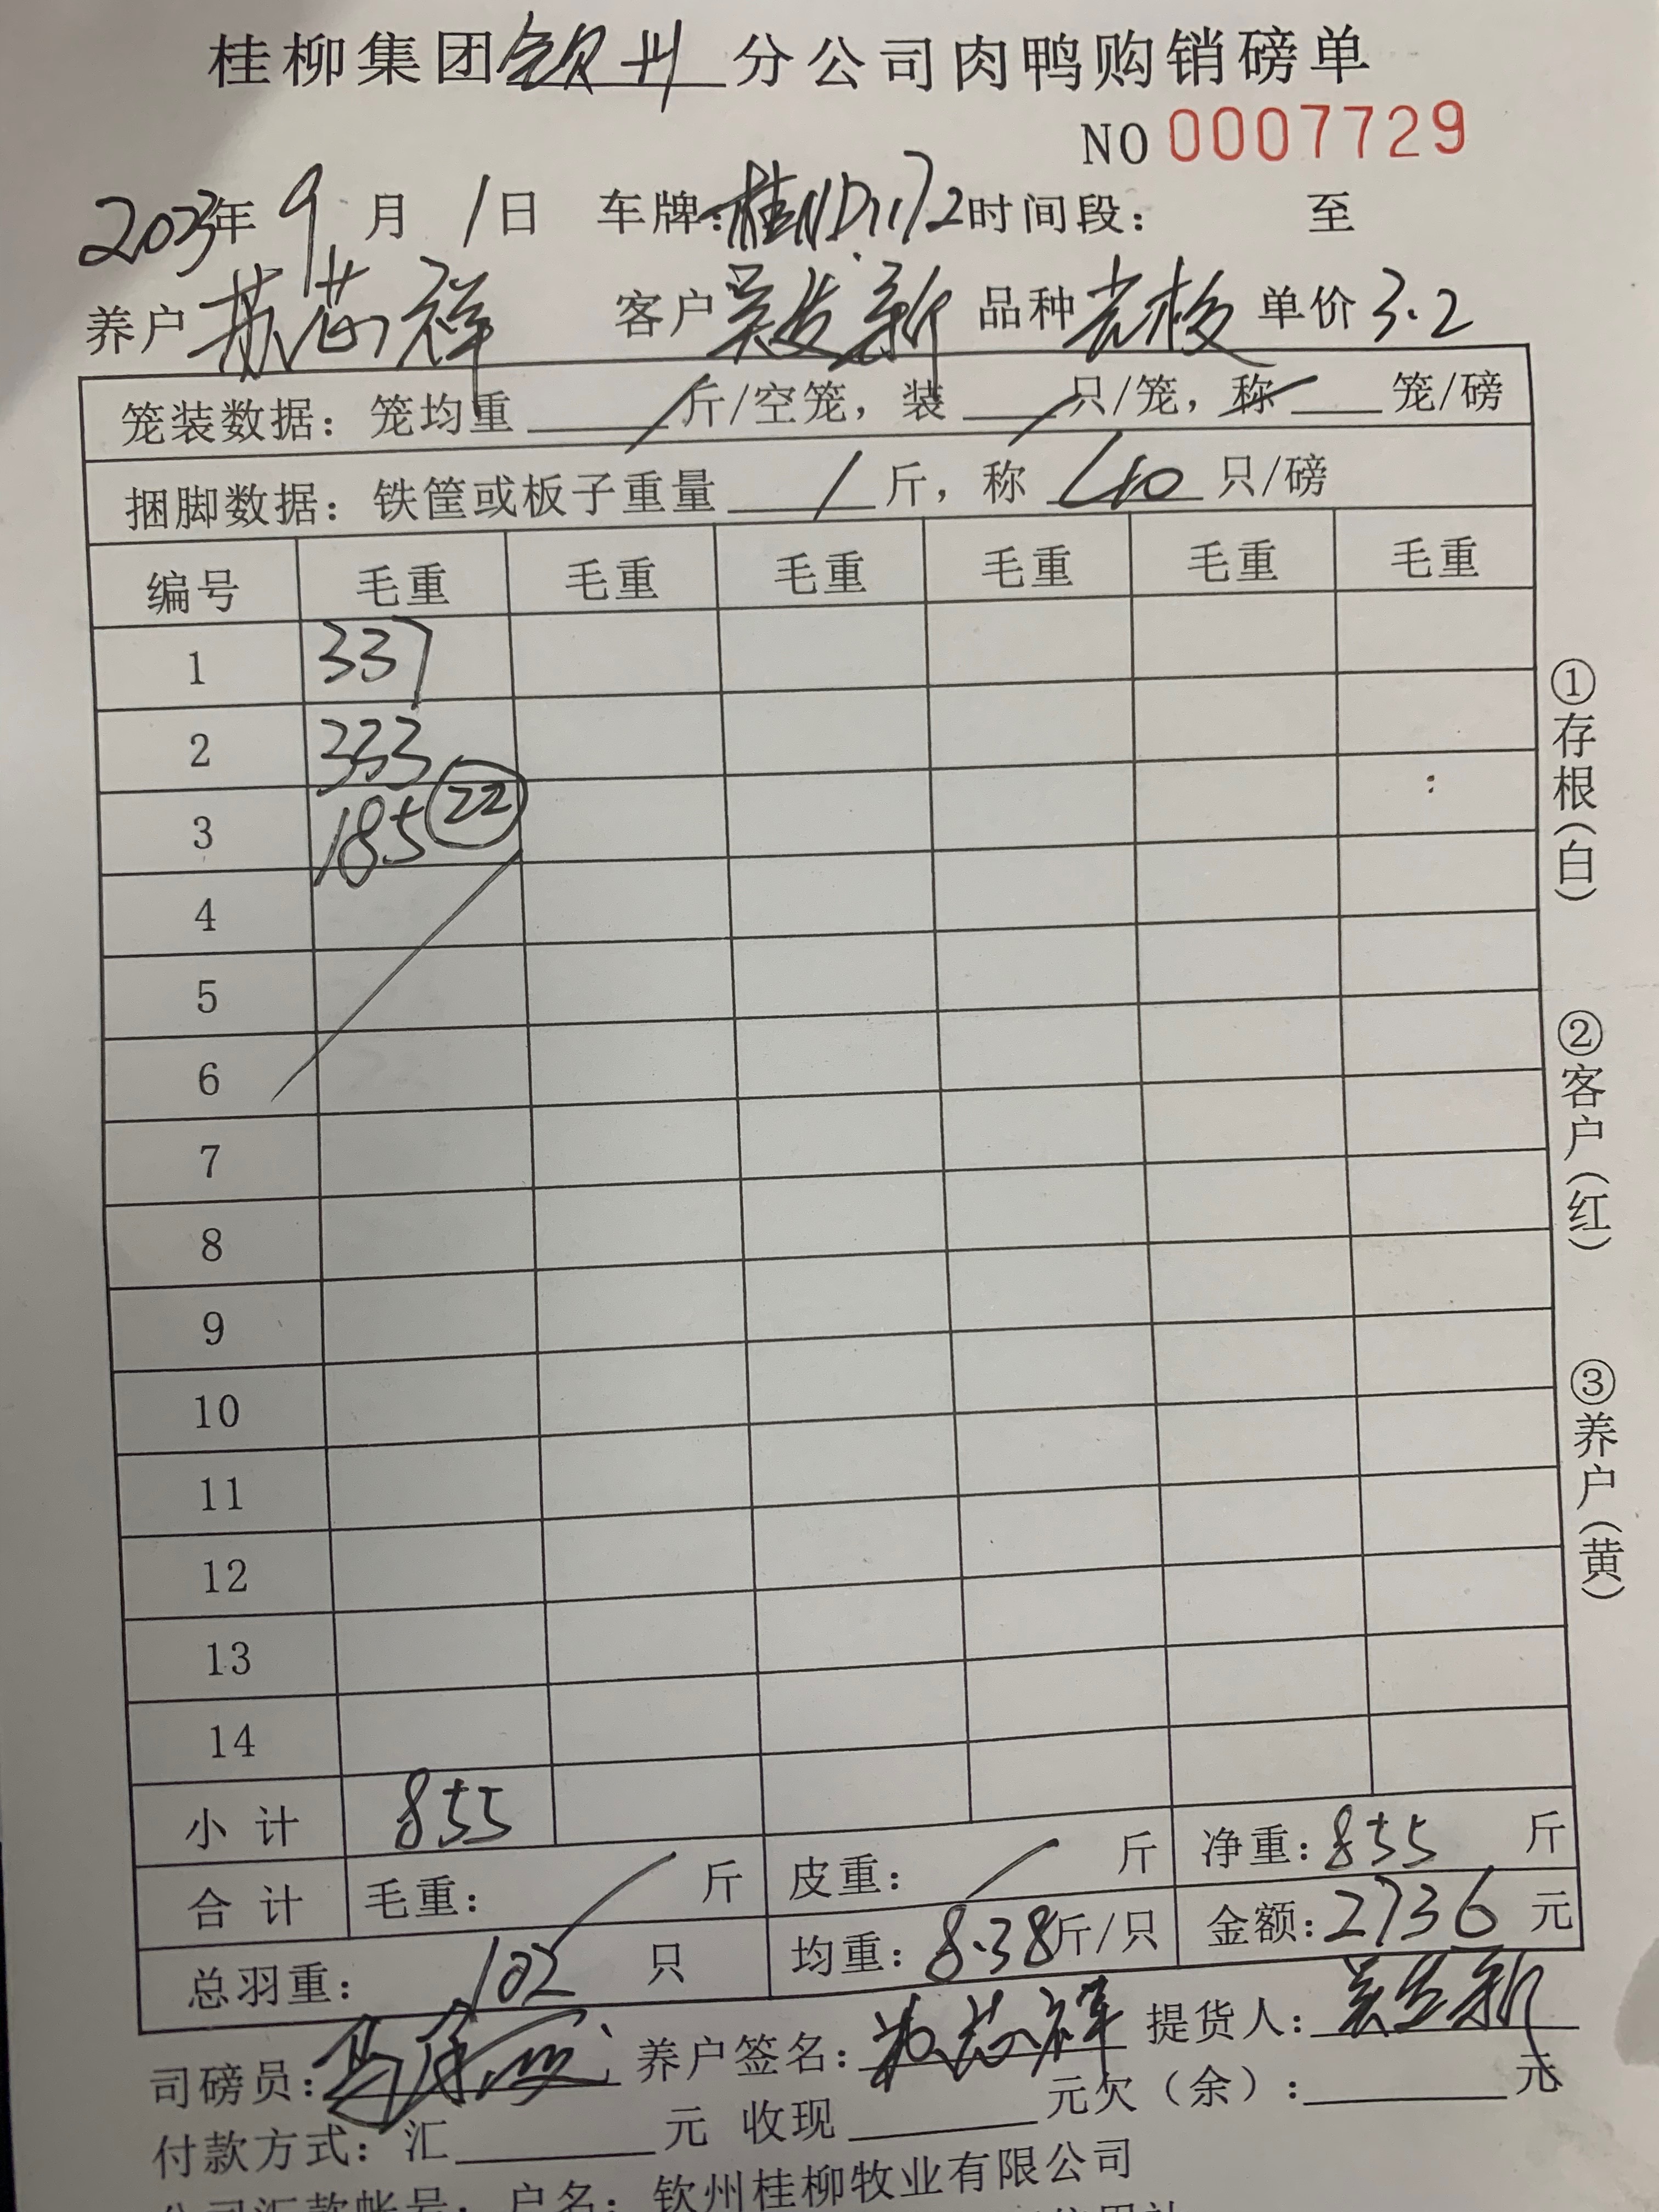 桂柳集团钦州分公司肉鸭购销磅单
NO 0007729
2023年 9 月 1 日 车牌:桂ND1172 时间段: 至
养户 苏芯祥 客户 吴发新 品种 单价 3.2
笼装数据:笼均重 / 斤/空笼,装 / 只/笼,称 / 笼/磅
捆脚数据:铁筐或板子重量 / 斤,称 40 只/磅
编号 毛重 毛重 毛重 毛重 毛重 毛重
1 337
2 333
3 185 22
4
5
6
7
8
9
10
11
12
13
14
小计 855
合计 毛重: / 斤 皮重: / 斤 净重:855 斤
总羽重: 102 只 均重:8.38斤/只 金额:2736 元
司磅员: 养户签名:苏芯祥 提货人:吴发新
付款方式:汇 元 收现 元欠(余): 元
公司汇款帐号:户名:钦州桂柳牧业有限公司
①存根(白)
②客户(红)
③养户(黄)